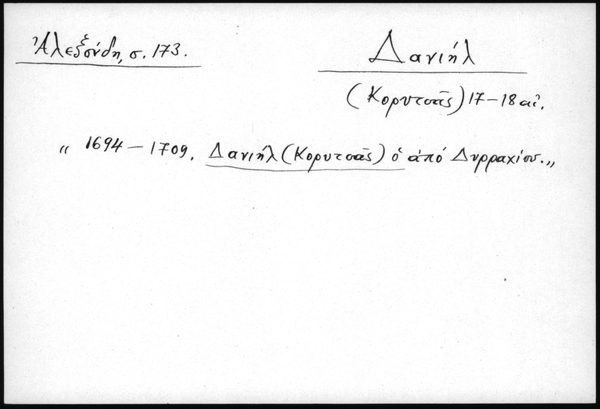 Ἀλεξούδη, σ. 173.
Δανιήλ
(Κορυτσᾶς) 17–18 αἰ.
„ 1694 – 1709. Δανιήλ (Κορυτσᾶς) ὁ ἀπό Δυρραχίου. „